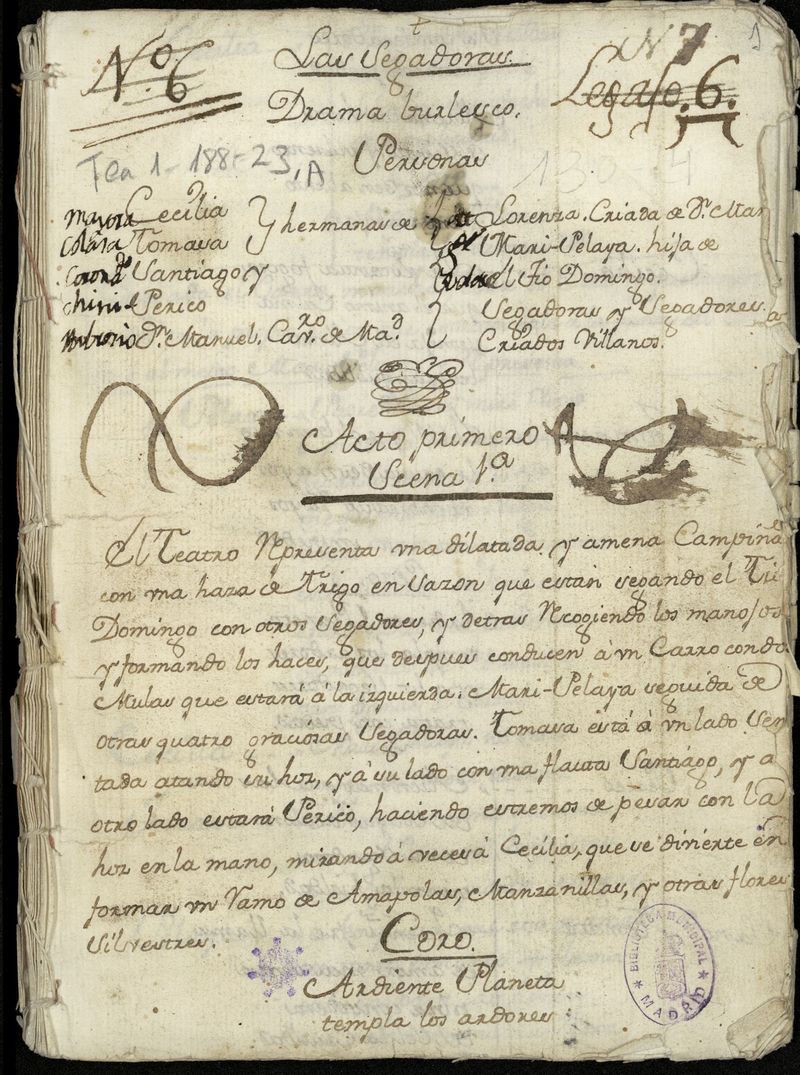 Nº 6
Las Segadoras.
N 7
1
Legajo. 6.
Drama burlesco.
Tea 1-188-23, A
130-4
Personas
mayora Cecilia
Tomasa
} hermanas de
Santiago y
chini- Perico
Dn. Manuel. Cavro. de Mad.
Lorenza. Criada de Dn. Man
Mari-Pelaya. hija de
el Tio Domingo.
Segadoras y Segadores.
Criados Villanos.
Acto primero
Scena 1.a
El Teatro Representa una dilatada y amena Campiña
con una haza de Trigo en Sazon que están segando el Tio
Domingo con otros Segadores, y detras Recogiendo los manojos
y formando los haces, que despues conducen á un Carro con dos
Mulas que estará á la izquierda. Mari-Pelaya seguida de
otras quatro graciosas Segadoras. Tomasa está á un lado Sen
tada atando su hoz, y á su lado con una flauta Santiago, y a
otro lado estará Perico, haciendo estremos de pesar con la
hoz en la mano, mirando á veces á Cecilia, que se divierte en
formar un Ramo de Amapolas, Manzanillas, y otras flores
Silvestres.
Coro.
Ardiente Planeta
templa los ardores
BIBLIOTECA MUNICIPAL
MADRID